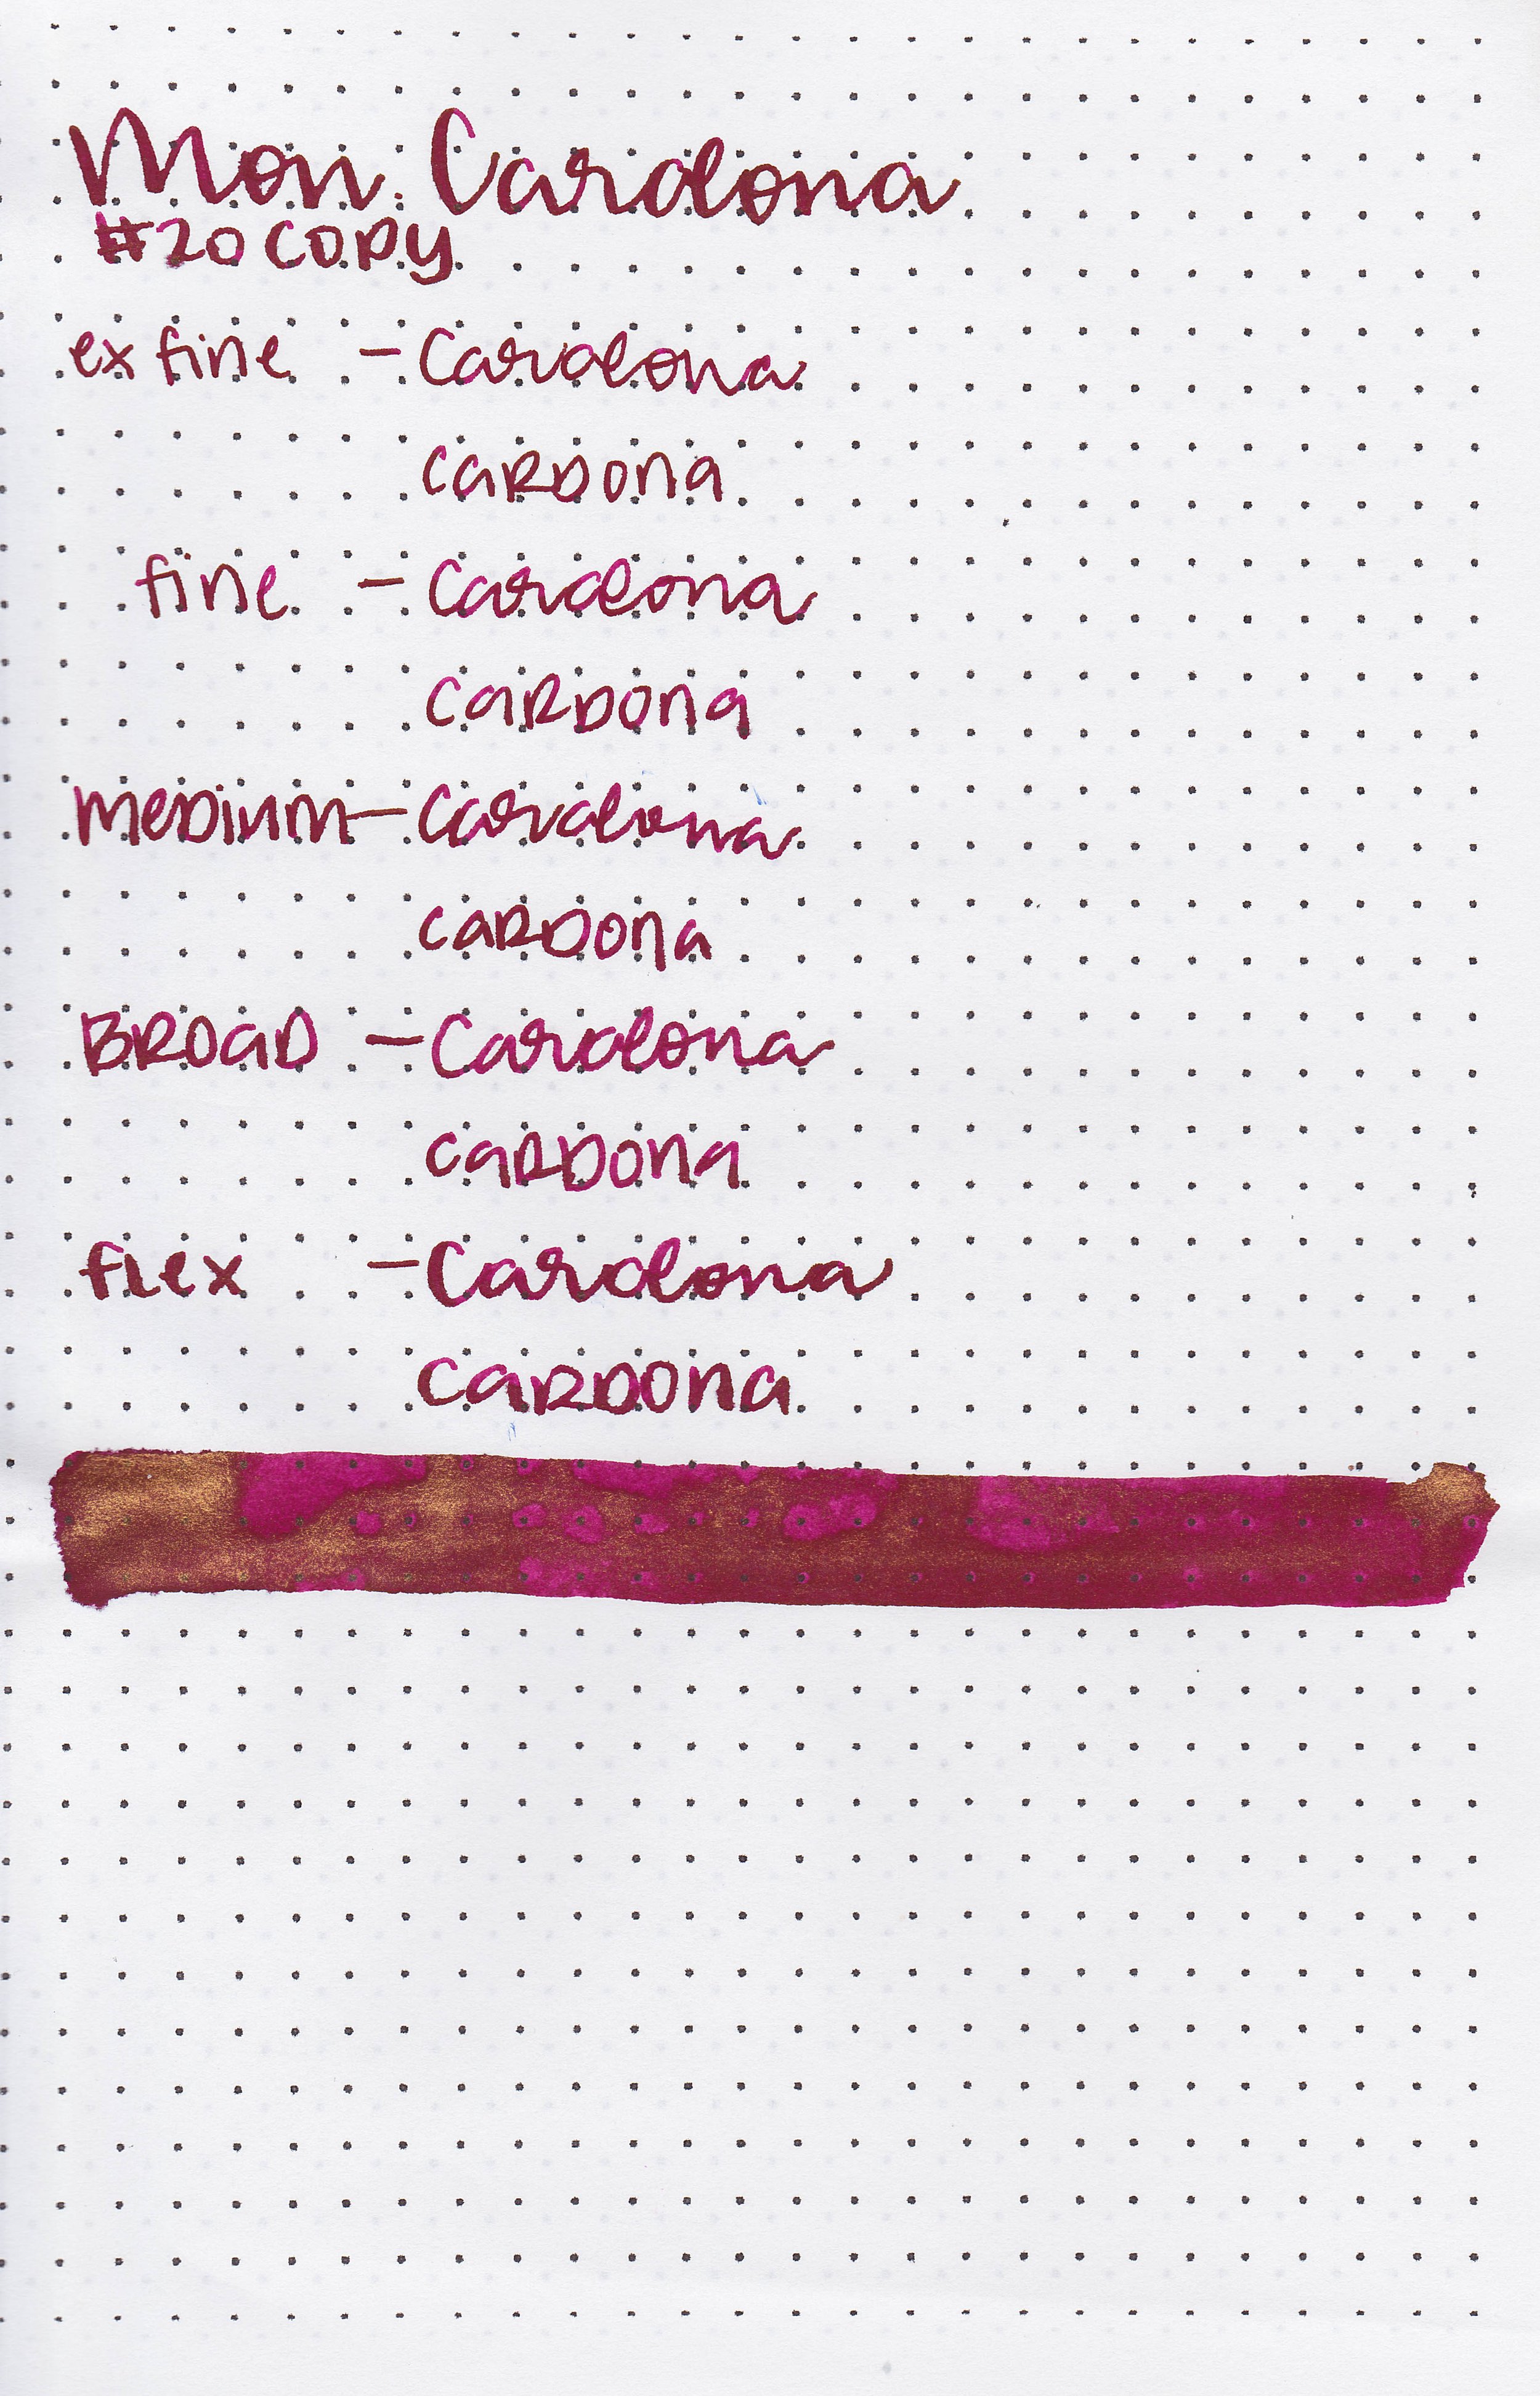 Mon. Cardona
#20 COPY
ex fine - Cardona
CARDONA
fine - Cardona
CARDONA
MEDIUM - Cardona
CARDONA
BROAD - Cardona
CARDONA
flex - Cardona
CARDONA